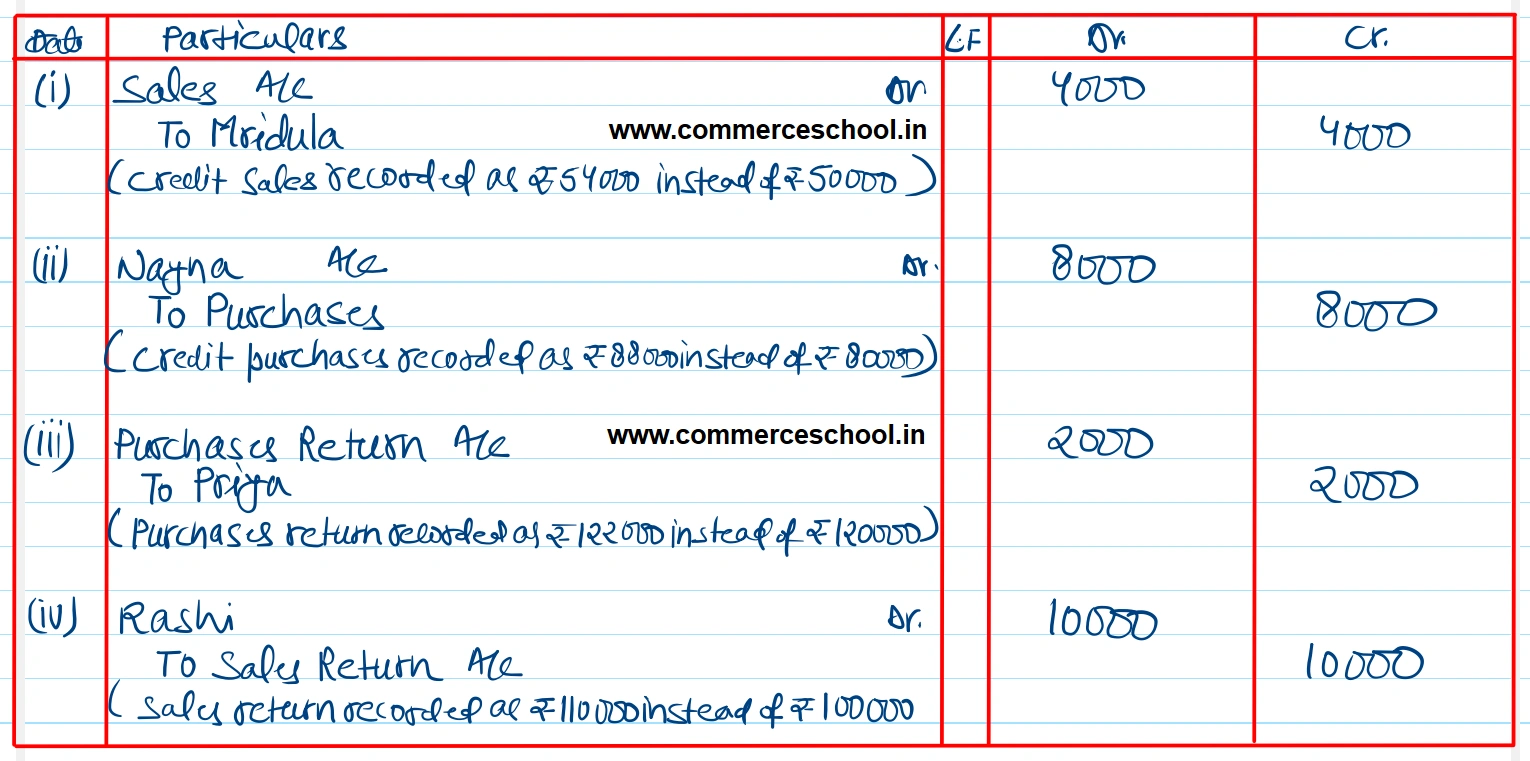 Date Particulars L.F Dr. Cr.
(i) Sales A/c Dr 4000
To Mridula 4000
www.commerceschool.in
(credit sales recorded as ₹54000 instead of ₹50000)
(ii) Nayna A/c Dr. 8000
To Purchases 8000
(credit purchases recorded as ₹88000 instead of ₹80000)
(iii) Purchases Return A/c 2000
www.commerceschool.in
To Priya 2000
(Purchases return recorded as ₹122000 instead of ₹120000)
(iv) Rashi Dr. 10000
To Sales Return A/c 10000
(Sales return recorded as ₹110000 instead of ₹100000